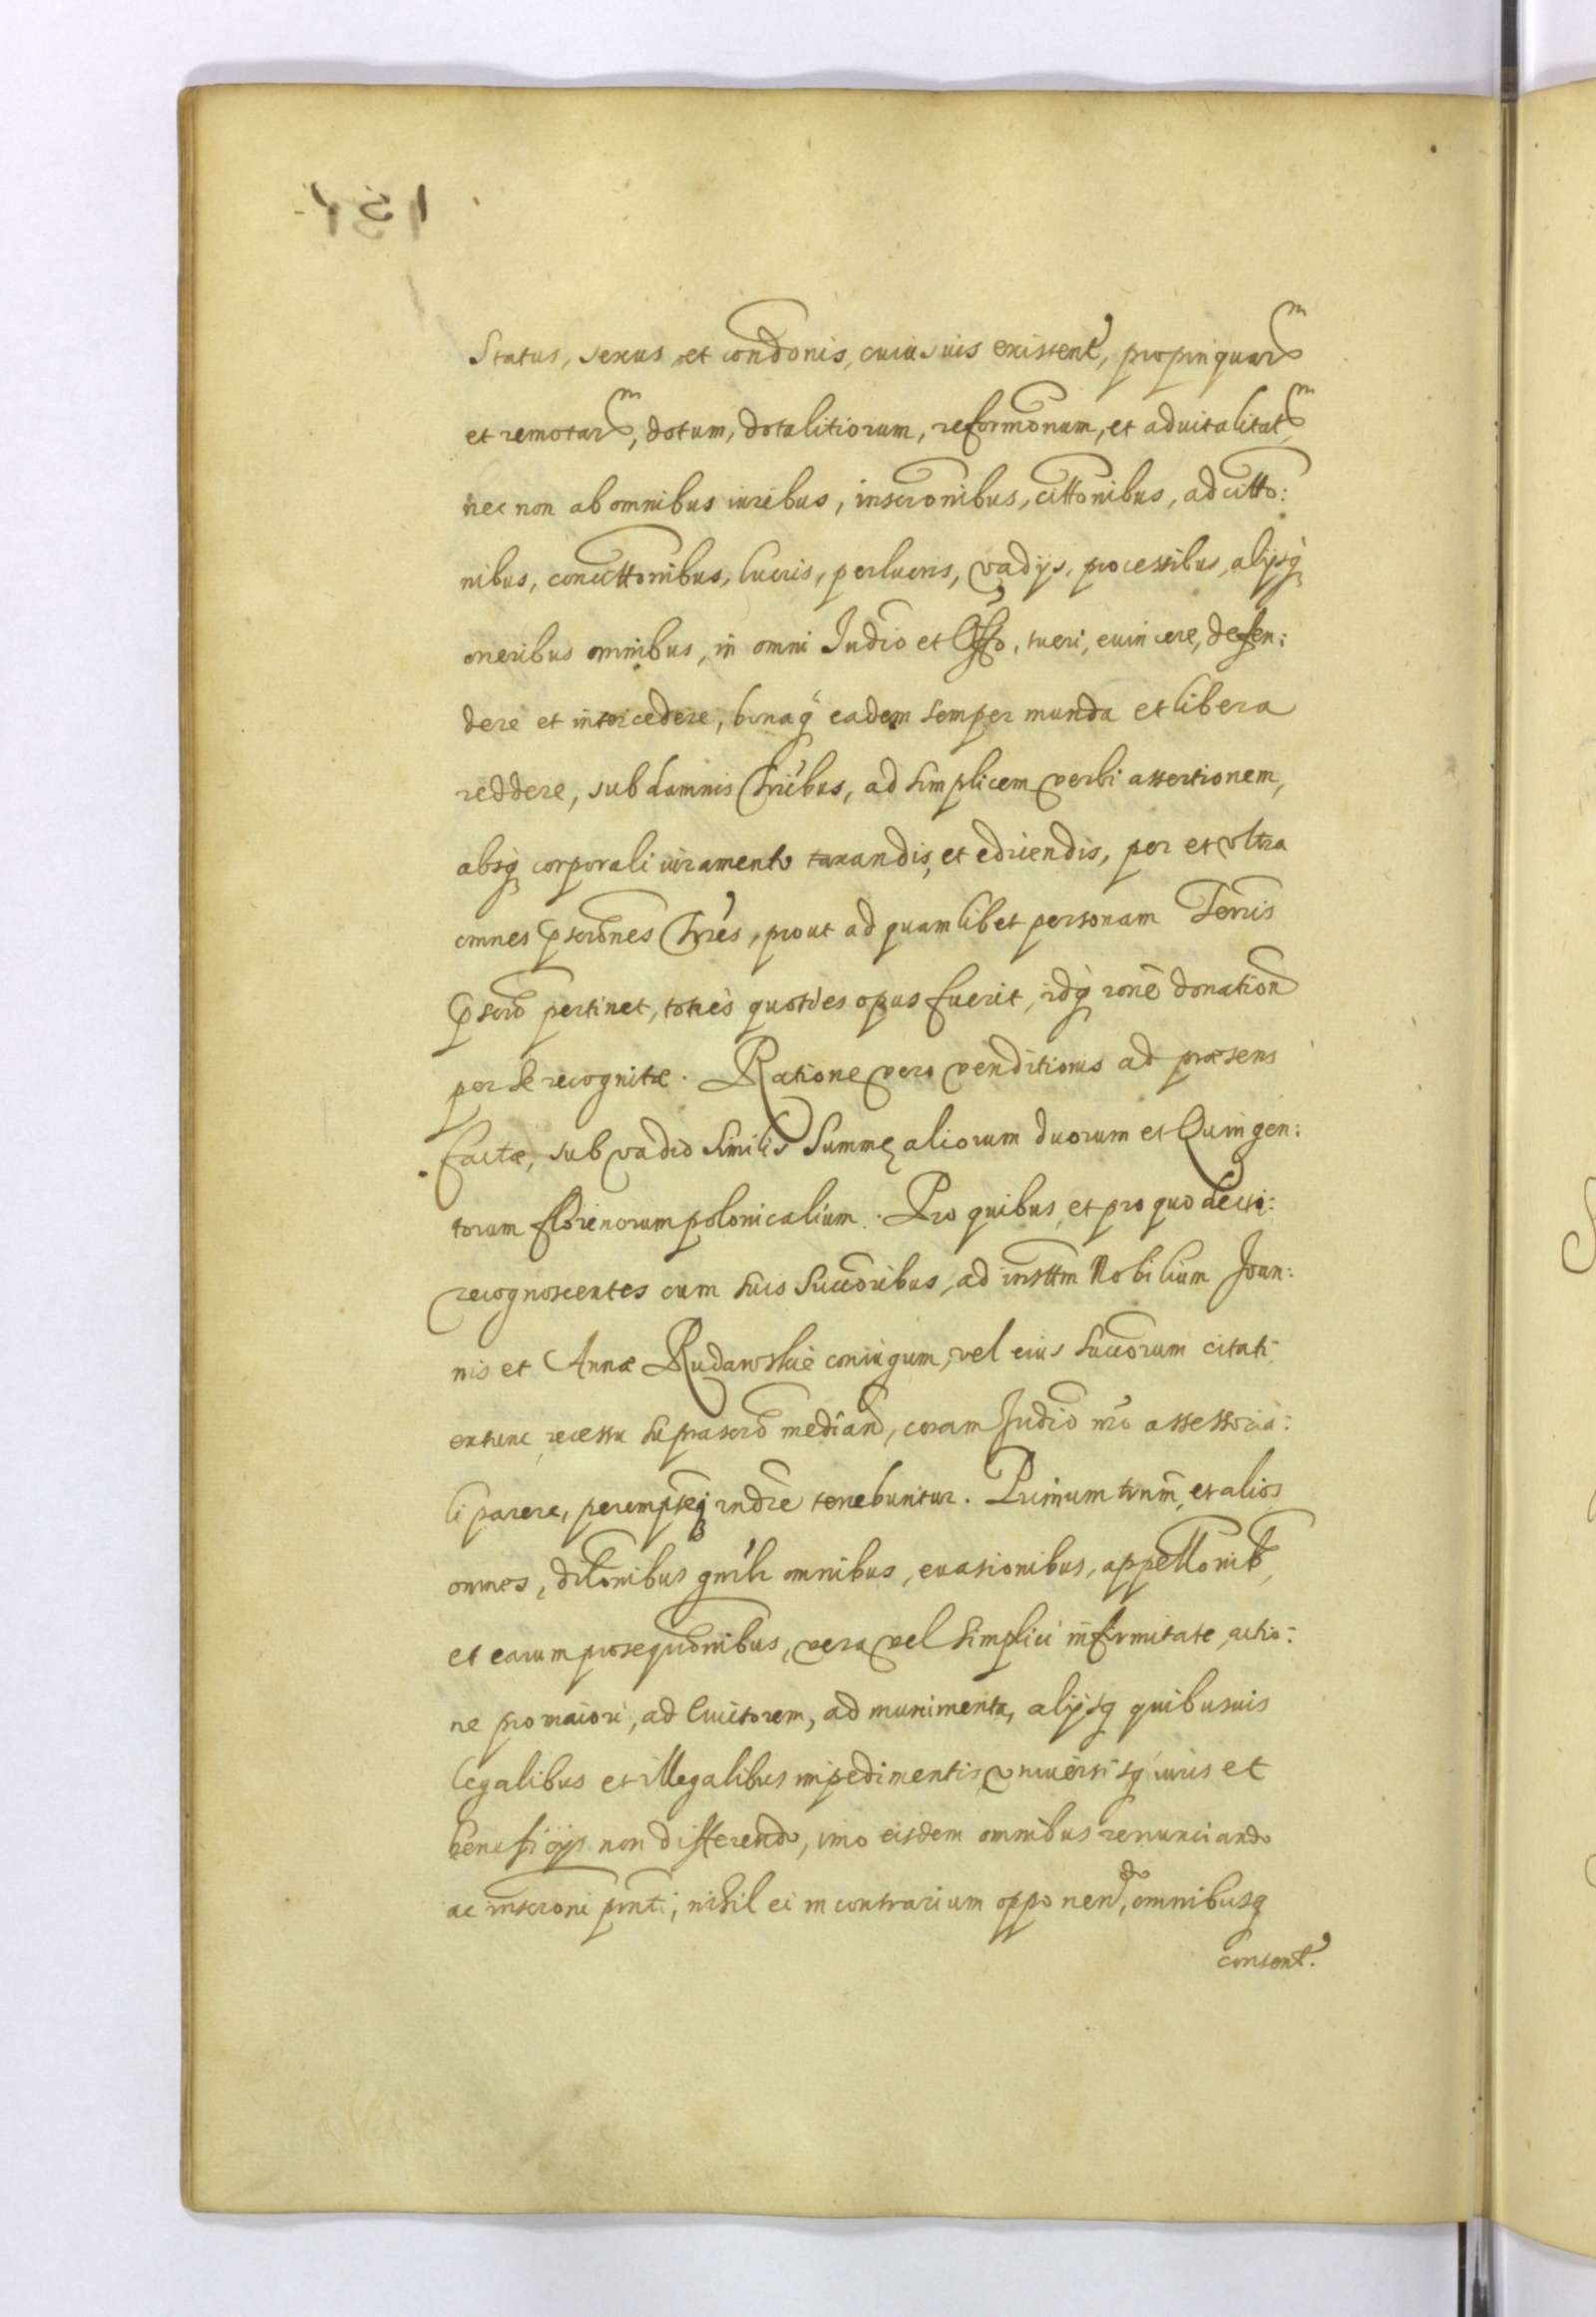 Status, sexus et condonis, cuiusuis existent, propinquar^m
et remotar^m, dotum, dotalitiorum, reformonum, et aduitalitat^m
nec non ab omnibus iuribus, inscronibus, cittonibus, adcitto:
nibus, concittonibus, lucris, perlucris, vadijs, processibus, alijsq
oneribus omnibus, in omni Iudio et Offo, tueri, euincere, defen:
dere et intercedere, bonaq eadem semper munda et libera
reddere, sub damnis tribus, ad simplicem verbi assertionem,
absq corporali iuramento taxandis, et edriendis, per et vltra
omnes pscrones tres, prout ad quamlibet personam Terris
pscro pertinet, toties quoties opus fuerit, idq rone donation
per se recognitæ. Ratione vero venditionis ad præsens
factæ, sub vadio similis Summę aliorum duorum et Quingen:
torum florenorum polonicalium. Pro quibus, et pro quo
recognoscentes cum suis succoribus, ad insttm Nobilium Ioan:
nis et Annæ Rudawskie coniugum, vel eius succorum citati
extunc recessu suprascro median, coram Iudio nro assessoria:
li parere, peremptieq rndre tenebuntur. Primum tnm, et alios
omnes, diltonibus gnrlr omnibus, euasionibus, appellonib,
et earum prosequonibus, vera vel simplici infirmitate, actio:
ne pro maiori, ad Euictorem, ad munimenta, alijsq quibusuis
legalibus et illegalibus impedimentis, vniuersisq iuris et
beneficijs non differendo, imo eisdem omnibus renunciando
ac inscroni pnti, nihil ei in contrarium opponen^do, omnibusq
consent.